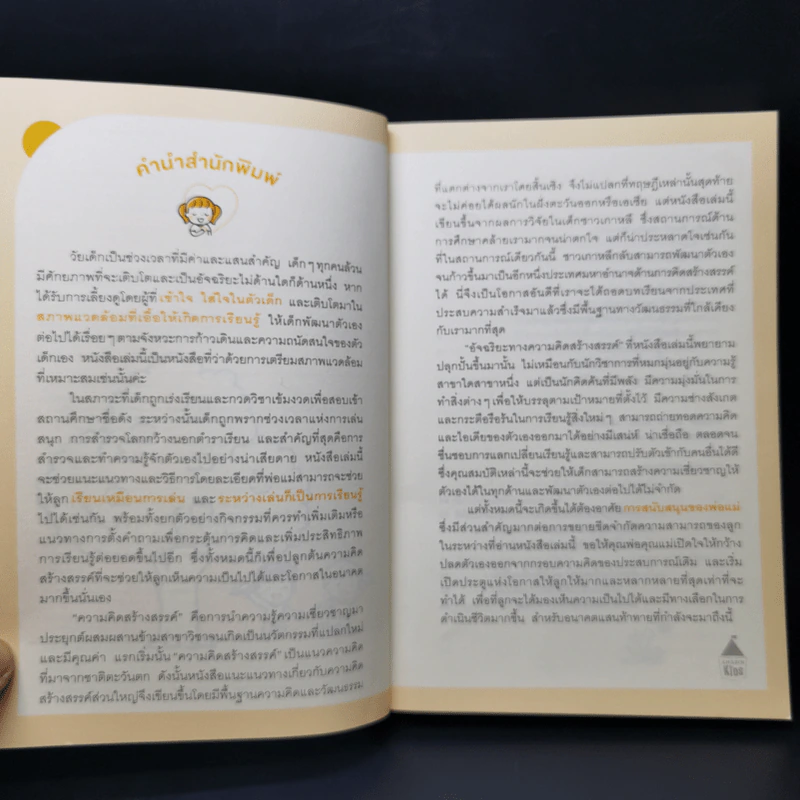 คำนำสำนักพิมพ์
วัยเด็กเป็นช่วงเวลาที่มีค่าและแสนสำคัญ เด็กๆ ทุกคนล้วน
มีศักยภาพที่จะเติบโตและเป็นอัจฉริยะไม่ด้านใดก็ด้านหนึ่ง หาก
ได้รับการเลี้ยงดูโดยผู้ที่เข้าใจ ใส่ใจในตัวเด็ก และเติบโตมาใน
สภาพแวดล้อมที่เอื้อให้เกิดการเรียนรู้ ให้เด็กพัฒนาตัวเอง
ต่อไปได้เรื่อยๆ ตามจังหวะการก้าวเดินและความถนัดสนใจของตัว
เด็กเอง หนังสือเล่มนี้เป็นหนังสือที่ว่าด้วยการเตรียมสภาพแวดล้อม
ที่เหมาะสมเช่นนั้นค่ะ
ในสภาวะที่เด็กถูกเร่งเรียนและกวดวิชาเข้มงวดเพื่อสอบเข้า
สถานศึกษาชื่อดัง ระหว่างนั้นเด็กถูกพรากช่วงเวลาแห่งการเล่น
สนุก การสำรวจโลกกว้างนอกตำราเรียน และสำคัญที่สุดคือการ
สำรวจและทำความรู้จักตัวเองไปอย่างน่าเสียดาย หนังสือเล่มนี้
จะช่วยแนะแนวทางและวิธีการโดยละเอียดที่พ่อแม่สามารถจะช่วย
ให้ลูกเรียนเหมือนการเล่น และระหว่างเล่นก็เป็นการเรียนรู้
ไปได้เช่นกัน พร้อมทั้งยกตัวอย่างกิจกรรมที่ควรทำเพิ่มเติมหรือ
แนวทางการตั้งคำถามเพื่อกระตุ้นการคิดและเพิ่มประสิทธิภาพ
การเรียนรู้ต่อยอดขึ้นไปอีก ซึ่งทั้งหมดนี้ก็เพื่อปลูกต้นความคิด
สร้างสรรค์ที่จะช่วยให้ลูกเห็นความเป็นไปได้และโอกาสในอนาคต
มากขึ้นนั่นเอง
"ความคิดสร้างสรรค์" คือการนำความรู้ความเชี่ยวชาญมา
ประยุกต์ผสมผสานข้ามสาขาวิชาจนเกิดเป็นนวัตกรรมที่แปลกใหม่
และมีคุณค่า แรกเริ่มนั้น "ความคิดสร้างสรรค์" เป็นแนวความคิด
ที่มาจากชาติตะวันตก ดังนั้นหนังสือแนะแนวทางเกี่ยวกับความคิด
สร้างสรรค์ส่วนใหญ่จึงเขียนขึ้นโดยมีพื้นฐานความคิดและวัฒนธรรม
ที่แตกต่างจากเราโดยสิ้นเชิง จึงไม่แปลกที่ทฤษฎีเหล่านั้นสุดท้าย
จะไม่ค่อยได้ผลนักในฝั่งตะวันออกหรือเอเชีย แต่หนังสือเล่มนี้
เขียนขึ้นจากผลการวิจัยในเด็กชาวเกาหลี ซึ่งสถานการณ์ด้าน
การศึกษาคล้ายเรามากจนน่าตกใจ แต่ก็น่าประหลาดใจเช่นกัน
ที่ในสถานการณ์เดียวกันนี้ ชาวเกาหลีกลับสามารถพัฒนาตัวเอง
จนก้าวขึ้นมาเป็นอีกหนึ่งประเทศมหาอำนาจด้านการคิดสร้างสรรค์
ได้ นี่จึงเป็นโอกาสอันดีที่เราจะได้ถอดบทเรียนจากประเทศที่
ประสบความสำเร็จมาแล้วซึ่งมีพื้นฐานทางวัฒนธรรมที่ใกล้เคียง
กับเรามากที่สุด
"อัจฉริยะทางความคิดสร้างสรรค์" ที่หนังสือเล่มนี้พยายาม
ปลุกปั้นขึ้นมานั้น ไม่เหมือนกับนักวิชาการที่หมกมุ่นอยู่กับความรู้
สาขาใดสาขาหนึ่ง แต่เป็นนักคิดค้นที่มีพลัง มีความมุ่งมั่นในการ
ทำสิ่งต่างๆ เพื่อให้บรรลุตามเป้าหมายที่ตั้งไว้ มีความช่างสังเกต
และกระตือรือร้นในการเรียนรู้สิ่งใหม่ๆ สามารถถ่ายทอดความคิด
และไอเดียของตัวเองออกมาได้อย่างมีเสน่ห์ น่าเชื่อถือ ตลอดจน
ชื่นชอบการแลกเปลี่ยนเรียนรู้และสามารถปรับตัวเข้ากับคนอื่นได้ดี
ซึ่งคุณสมบัติเหล่านี้จะช่วยให้เด็กสามารถสร้างความเชี่ยวชาญให้
ตัวเองได้ในทุกด้านและพัฒนาตัวเองต่อไปได้ไม่จำกัด
แต่ทั้งหมดนี้จะเกิดขึ้นได้ต้องอาศัย การสนับสนุนของพ่อแม่
ซึ่งมีส่วนสำคัญมากต่อการขยายขีดจำกัดความสามารถของลูก
ในระหว่างที่อ่านหนังสือเล่มนี้ ขอให้คุณพ่อคุณแม่เปิดใจให้กว้าง
ปลดตัวเองออกจากกรอบความคิดของประสบการณ์เดิม และเริ่ม
เปิดประตูแห่งโอกาสให้ลูกให้มากและหลากหลายที่สุดเท่าที่จะ
ทำได้ เพื่อที่ลูกจะได้มองเห็นความเป็นไปได้และมีทางเลือกในการ
ดำเนินชีวิตมากขึ้น สำหรับอนาคตแสนท้าทายที่กำลังจะมาถึงนี้
Kids